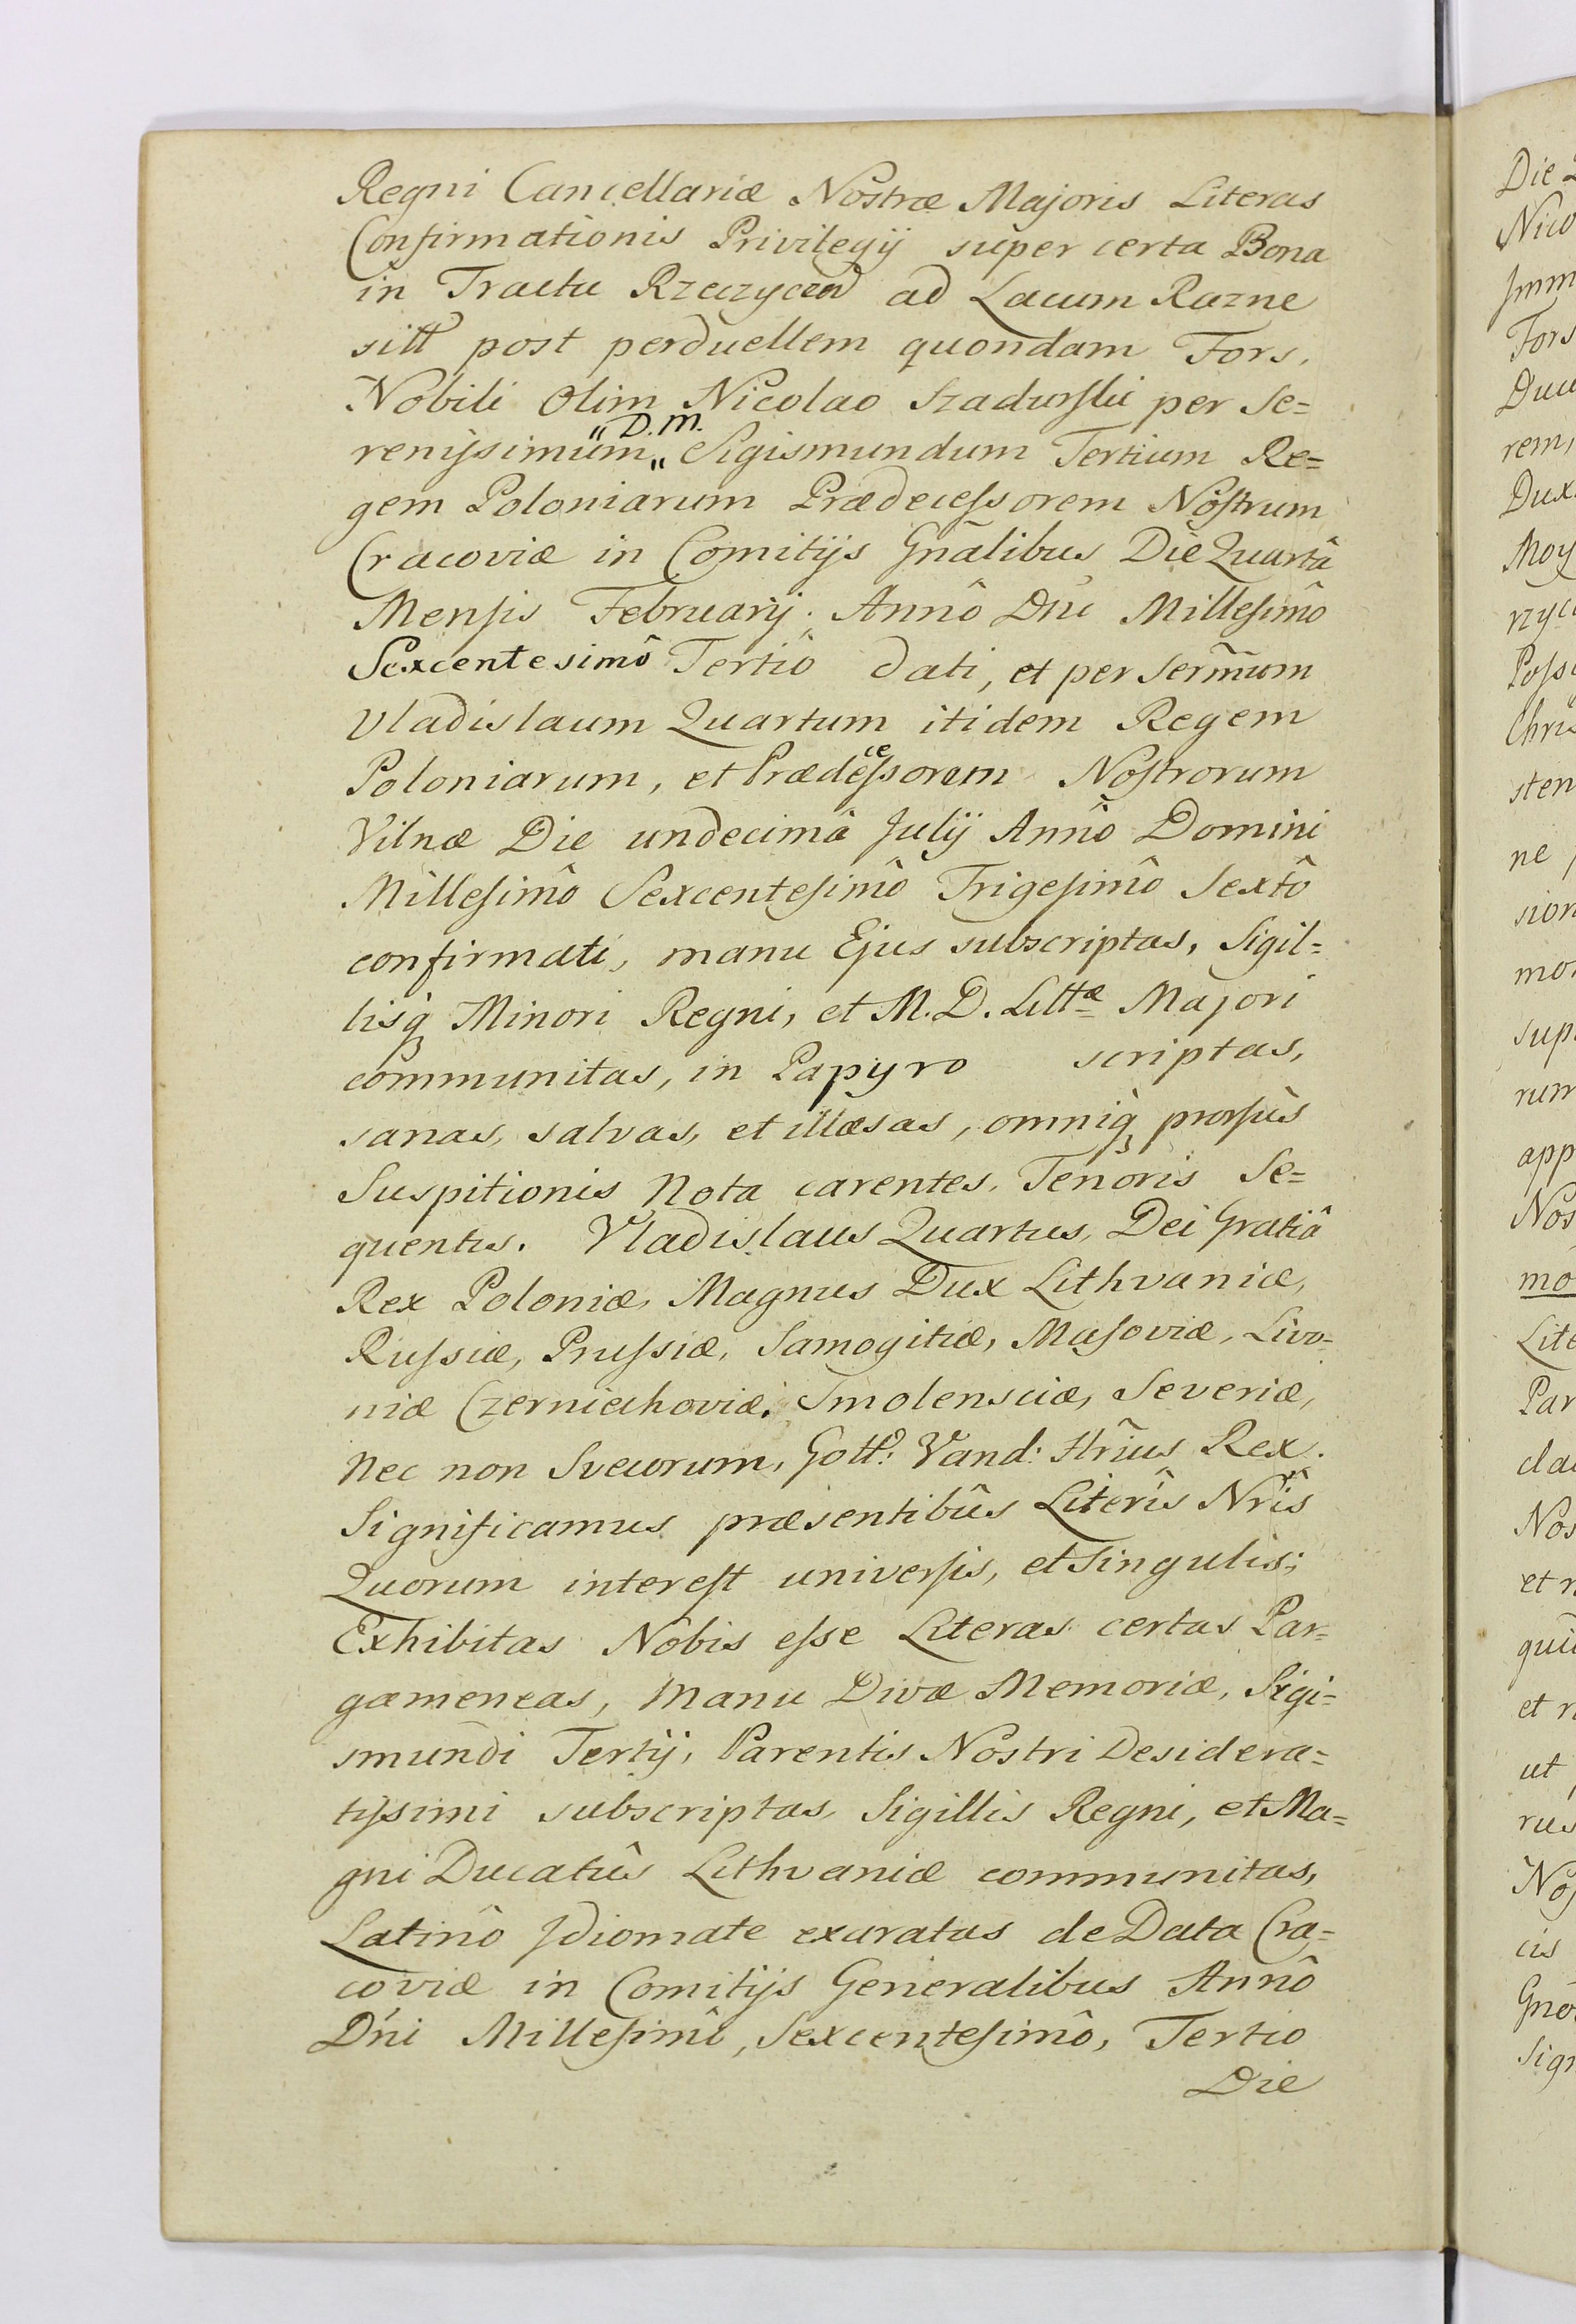 Regni Cancellariæ Nostræ Majoris Literas
Confirmationis Privilegij super certa Bona
in Tractu Rzeczycen ad Lacum Razne
sitt post perduellem quondam Fors,
Nobili Olim Nicolao Szadurſki per Se=
"D.M.
renijsimum„ Sigismundum Tertium Re=
gem Poloniarum Prædeceſsorem Noſtrum
Cracoviæ in Comitijs Gnãlibus Die Quartâ
Menſis Februarij. Annô Dni Milleſimô
Sexcentesimô Tertiô dati, et per Serm̃um
Vladislaum Quartum itidem Regem
ce
Poloniarum, et Prædeſsorem Noſtrorum
Vilnæ Die undecimâ Julij Annô Domini
Milleſimô Sexcenteſimô Trigeſimô Sextô
confirmati, manu Ejus subscriptas, Sigil=
lisq̃ Minori Regni, et M. D. Littæ Majori
communitas, in Papyro scriptas,
sanas, salvas, et illæsas, omniq̃ prorſùs
Suspitionis Nota carentes, Tenoris Se=
quentis. Vladislaus Quartus, Dei Gratiâ
Rex Poloniæ, Magnus Dux Lithvaniæ,
Ruſsiæ, Pruſsiæ, Samogitiæ, Maſoviæ, Livo=
niæ Czerniechoviæ, Smolensciæ, Severiæ,
Nec non Svecorum, Gotth: Vand: Hr̃ius Rex.
Significamus præsentibûs Literîs Nrîs
Quorum intereſt univerſis, et Singulis;
Exhibitas Nobis eſse Literas certas Par=
gameneas, Manu Divæ Memoriæ, Sigi=
smundi Tertij, Parentis Nostri Desidera=
tijsimi subscriptas, Sigillis Regni, et Ma=
gni Ducatûs Lithvaniæ communitas,
Latinô Idiomate exaratas de Data Cra=
coviæ in Comitijs Generalibus Annô
D'ni Milleſimî, Sexcenteſimô, Tertio
Die